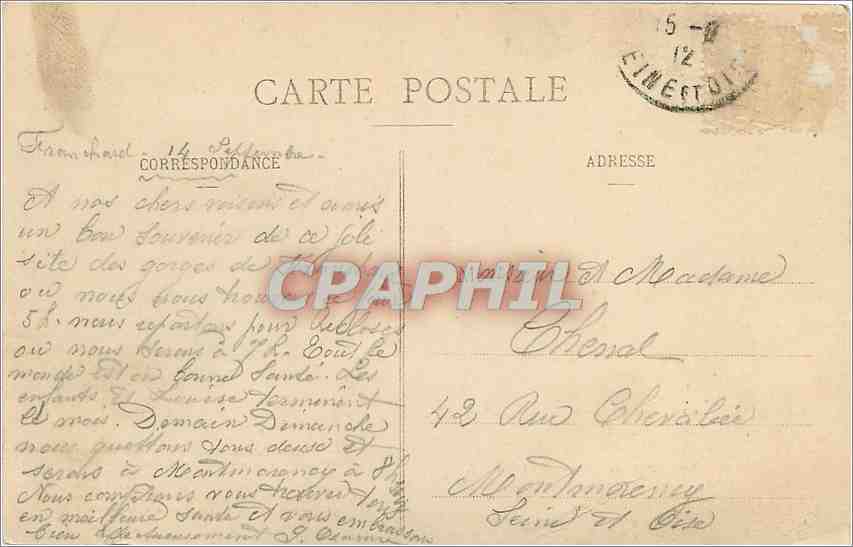 15 -9
12
EINE ET OISE
CARTE POSTALE
Franchard - 14 Septembre -
CORRESPONDANCE
A nos chers voisins et amis
un bon souvenir de ce joli
site des gorges de
ou nous nous
5h. nous repartons pour Recloses
ou nous serons à 7h. Tout le
monde est en bonne santé. Les
enfants et Louise terminent
le mois. Demain Dimanche
nous quittons tous deux et
serons à Montmorency à 8h
Nous comptons vous trouver tous
en meilleure santé et vous embrassons
bien affectueusement
ADRESSE
Monsieur et Madame
Chenal
42 Rue
Montmorency
Seine et Oise
CPAPHIL